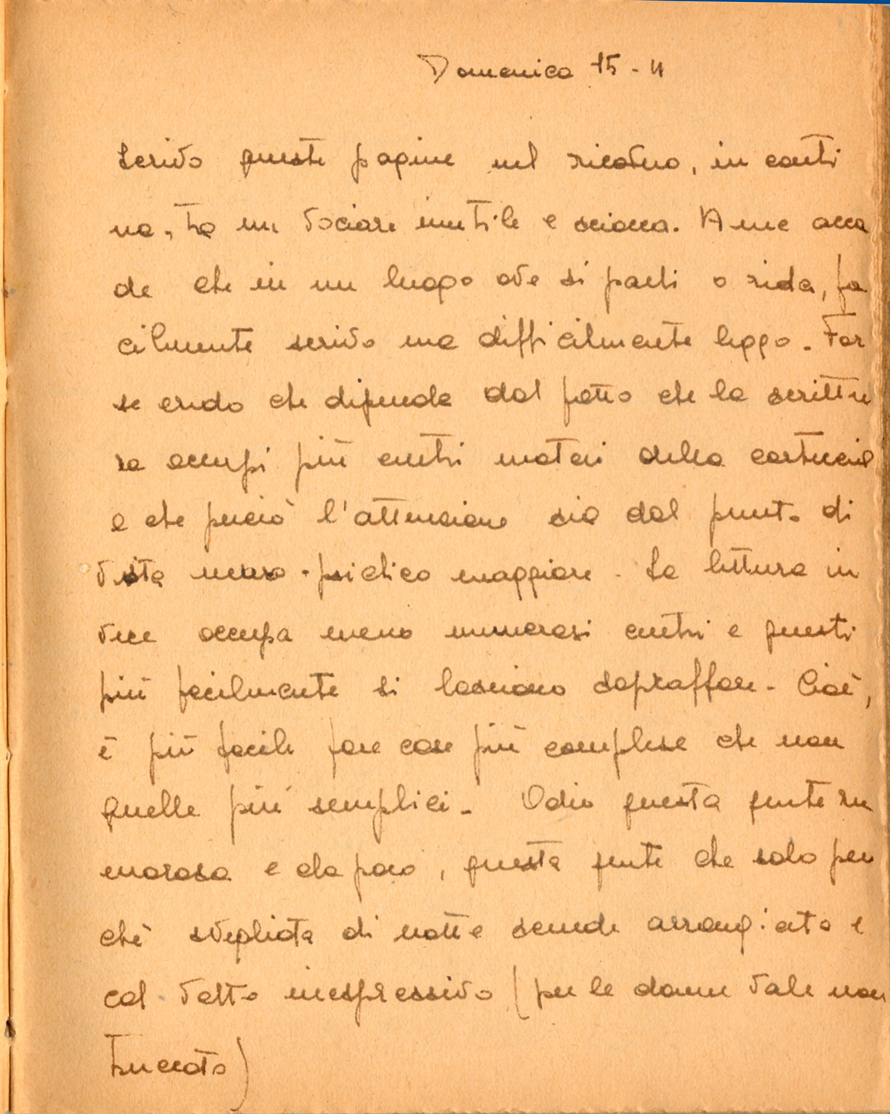 Domenica 15-11
Scrivo queste pagine nel ricovero, in canti
na, tra un vociare inutile e sciocco. A me acca
de che in un luogo ove si parli o rida, fa
cilmente scrivo ma difficilmente leggo. For
se credo che dipenda dal fatto che la scrittu
ra occupi più centri motori della
e che perciò l'attenzione sia dal punto di
vista neuro-psichico maggiore. La lettura in
vece occupa meno numerosi centri e questi
più facilmente si lasciano sopraffare. Cioè,
è più facile fare cose più complesse che non
quelle più semplici. Odio questa gente ru
morosa e da poco, questa gente che solo per
chè svegliata di notte scende arrangiata e
col volto inespressivo (per le donne vale non
truccato)